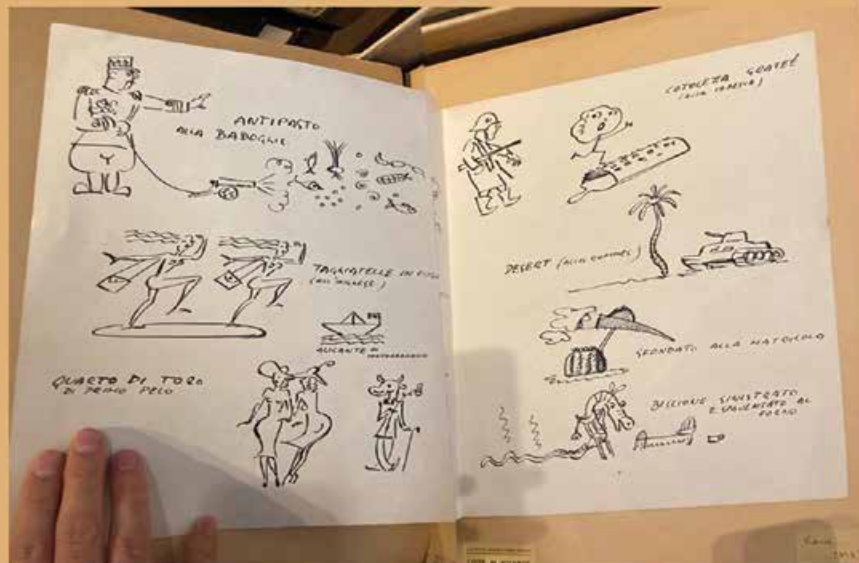 ANTIPASTO
ALLA BADOGLIO
TAGLIATELLE IN
(ALL'INGLESE)
ALICANTE DI
QUARTO DI TORO
DI PRIMO PELO
COTOLETTA
(ALLA
DESERT (ALLA ROMMEL)
SFONDATO ALLA MATRICOLA
BICCIONE SINISTRATO
E SPAVENTATO AL
FORNO